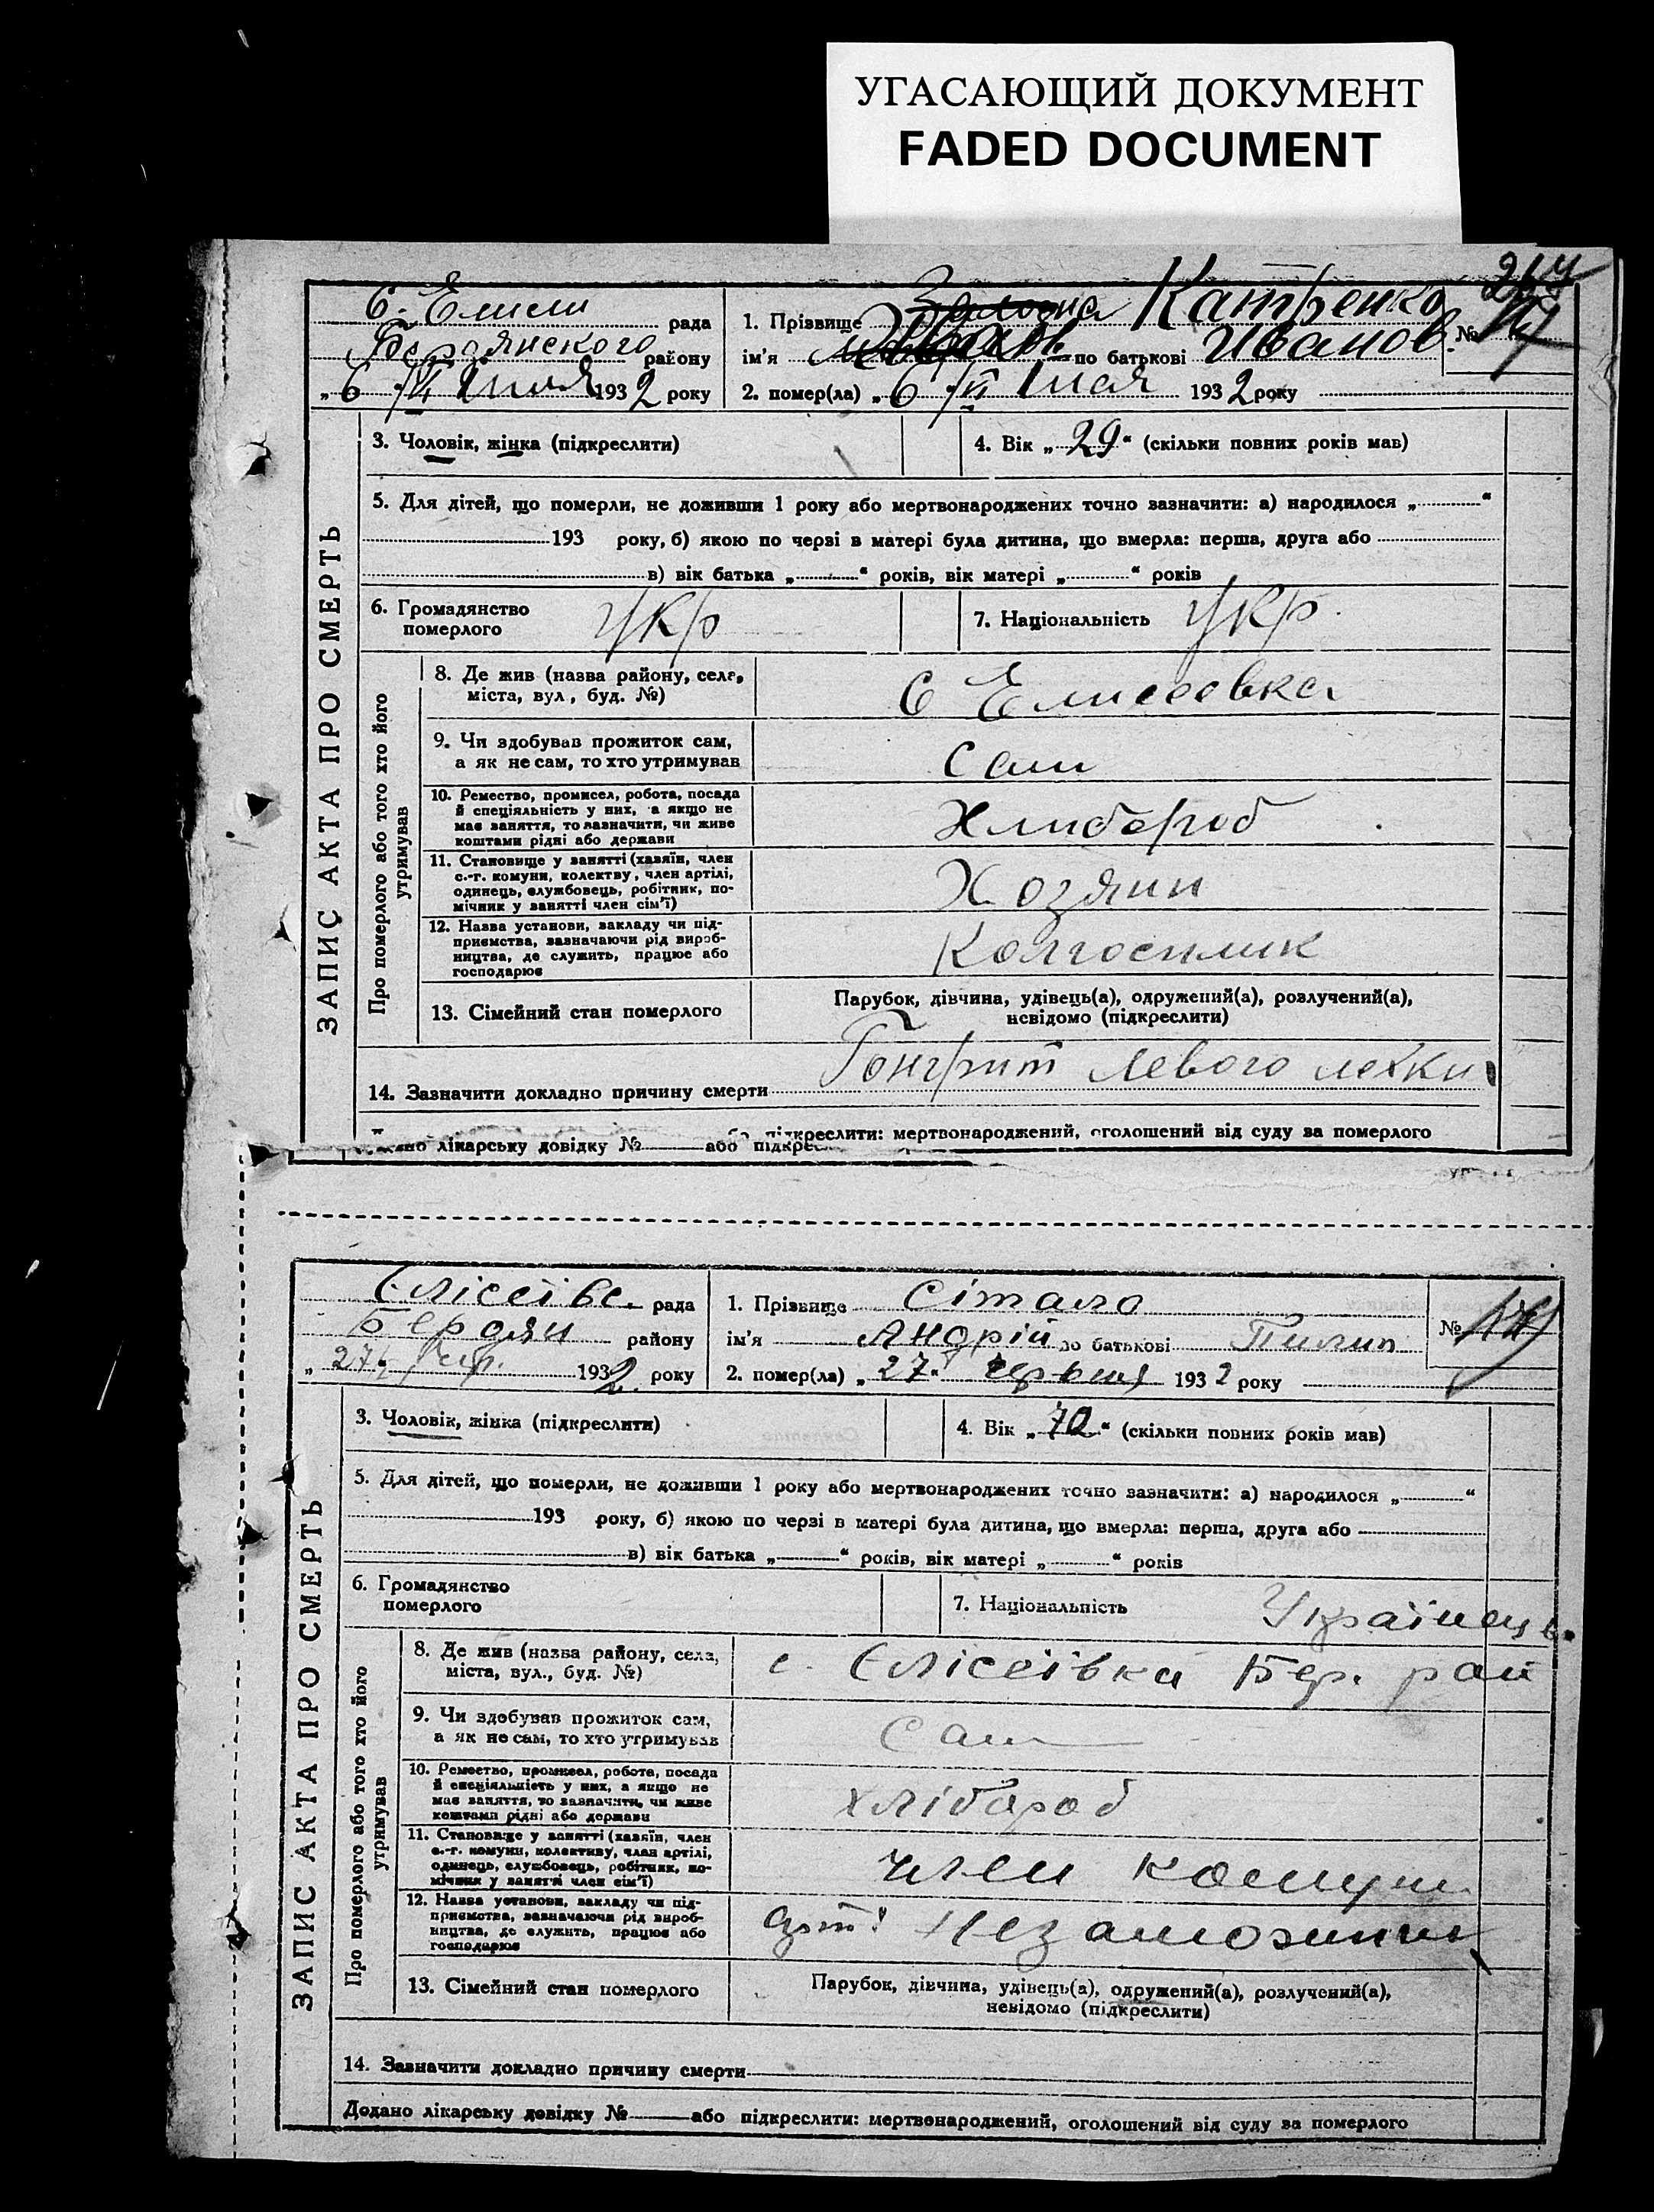 УГАСАЮЩИЙ ДОКУМЕНТ
FADED DOCUMENT
с. Елисеи рада
Бердянского району
„6 /VI 1932 року
1. Прізвище Катренко
ім'я по батькові Иванов. №
2. помер(ла) „6 /VI 1932 року
ЗАПИС АКТА ПРО СМЕРТЬ
3. Чоловік, жінка (підкреслити)
4. Вік „29“ (скільки повних років мав)
5. Для дітей, що померли, не доживши 1 року або мертвонароджених точно зазначити: а) народилося „ “
193 року, б) якою по черзі в матері була дитина, що вмерла: перша, друга або
в) вік батька „ “ років, вік матері „ “ років
6. Громадянство
померлого Укр
7. Національність Укр.
Про померлого або того хто його
утримував
8. Де жив (назва району, села,
міста, вул, буд. №) с Елисеевка
9. Чи здобував прожиток сам,
а як не сам, то хто утримував Сам
10. Ремество, промисел, робота, посада
й спеціяльність у них, а якщо не
має заняття, то зазначити, чи живе
коштами рідні або держави Хлибороб
11. Становище у занятті (хазяїн, член
с.-г. комуни, колективу, член артілі,
одинець, службовець, робітник, по-
мічник у занятті член сім'ї) Хозяин
12. Назва установи, закладу чи під-
приємства, зазначаючи рід вироб-
ництва, де служить, працює або
господарює Колгоспник
13. Сімейний стан померлого
Парубок, дівчина, удівець(а), одружений(а), розлучений(а),
невідомо (підкреслити)
14. Зазначити докладно причину смерти левого
лікарську довідку № або підкреслити: мертвонароджений, оголошений від суду за померлого
Єлісеївс. рада
Бердян району
„27“ чер. 1932 року
1. Прізвище Сітало
ім'я Андрій по батькові Пилип №
2. помер(ла) „27“ червня 1932 року
ЗАПИС АКТА ПРО СМЕРТЬ
3. Чоловік, жінка (підкреслити)
4. Вік „70“ (скільки повних років мав)
5. Для дітей, що померли, не доживши 1 року або мертвонароджених точно зазначити: а) народилося „ “
193 року, б) якою по черзі в матері була дитина, що вмерла: перша, друга або
в) вік батька „ “ років, вік матері „ “ років
6. Громадянство
померлого
7. Національність Українець.
Про померлого або того хто його
утримував
8. Де жив (назва району, села,
міста, вул., буд. №) с. Єлісеївка Бер. рай
9. Чи здобував прожиток сам,
а як не сам, то хто утримував Сам
10. Ремество, промисел, робота, посада
й спеціяльність у них, а якщо не
має заняття, то зазначити, чи живе
коштами рідні або держави хлібороб
11. Становище у занятті (хазяїн, член
с.-г. комуни, колективу, член артілі,
одинець, службовець, робітник, по-
мічник у занятті член сім'ї) член комуни
12. Назва установи, закладу чи під-
приємства, зазначаючи рід вироб-
ництва, де служить, працює або
господарює арт. Незаможник
13. Сімейний стан померлого
Парубок, дівчина, удівець(а), одружений(а), розлучений(а),
невідомо (підкреслити)
14. Зазначити докладно причину смерти
Додано лікарську довідку № або підкреслити: мертвонароджений, оголошений від суду за померлого